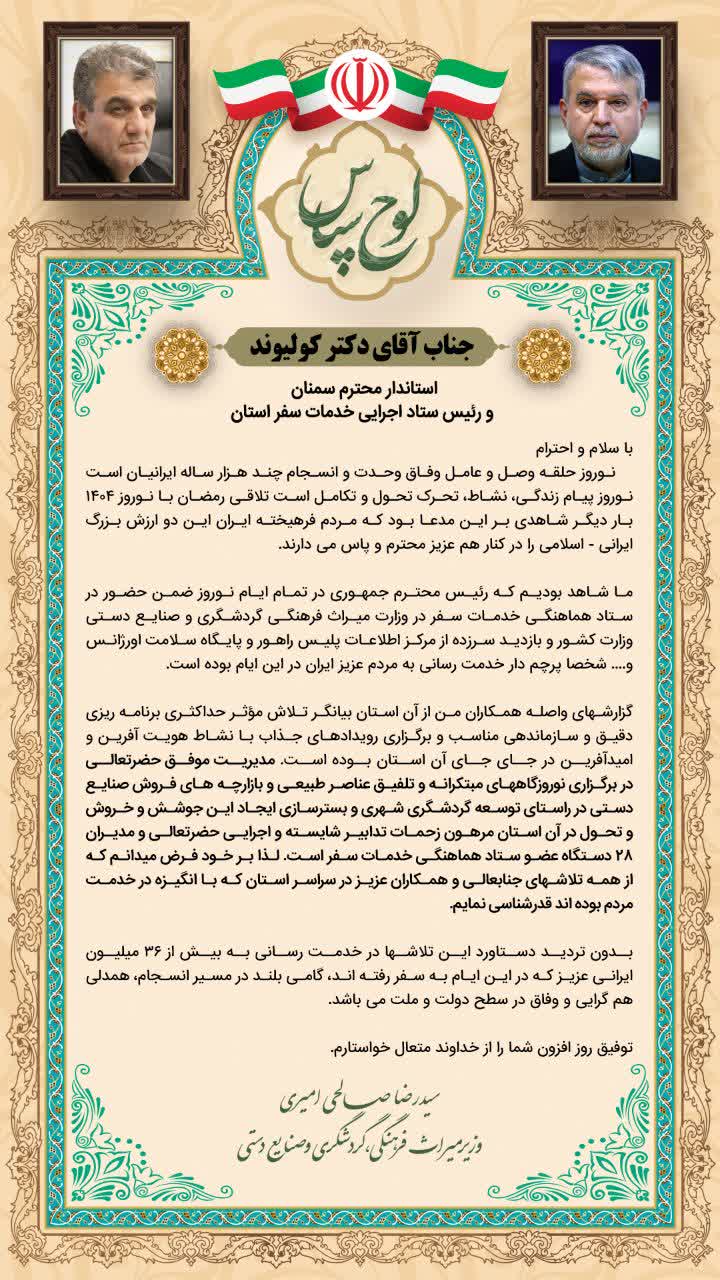 لوح سپاس
جناب آقای دکتر کولیوند
استاندار محترم سمنان
و رئیس ستاد اجرایی خدمات سفر استان
با سلام و احترام
نوروز حلقه وصل و عامل وفاق وحدت و انسجام چند هزار ساله ایرانیان است
نوروز پیام زندگی، نشاط، تحرک تحول و تکامل است تلاقی رمضان با نوروز ۱۴۰۴
بار دیگر شاهدی بر این مدعا بود که مردم فرهیخته ایران این دو ارزش بزرگ
ایرانی - اسلامی را در کنار هم عزیز محترم و پاس می دارند.
ما شاهد بودیم که رئیس محترم جمهوری در تمام ایام نوروز ضمن حضور در
ستاد هماهنگی خدمات سفر در وزارت میراث فرهنگی گردشگری و صنایع دستی
وزارت کشور و بازدید سرزده از مرکز اطلاعات پلیس راهور و پایگاه سلامت اورژانس
و.... شخصا پرچم دار خدمت رسانی به مردم عزیز ایران در این ایام بوده است.
گزارشهای واصله همکاران من از آن استان بیانگر تلاش مؤثر حداکثری برنامه ریزی
دقیق و سازماندهی مناسب و برگزاری رویدادهای جذاب با نشاط هویت آفرین و
امیدآفرین در جای جای آن استان بوده است. مدیریت موفق حضرتعالی
در برگزاری نوروزگاههای مبتکرانه و تلفیق عناصر طبیعی و بازارچه های فروش صنایع
دستی در راستای توسعه گردشگری شهری و بسترسازی ایجاد این جوشش و خروش
و تحول در آن استان مرهون زحمات تدابیر شایسته و اجرایی حضرتعالی و مدیران
۲۸ دستگاه عضو ستاد هماهنگی خدمات سفر است. لذا بر خود فرض میدانم که
از همه تلاشهای جنابعالی و همکاران عزیز در سراسر استان که با انگیزه در خدمت
مردم بوده اند قدرشناسی نمایم.
بدون تردید دستاورد این تلاشها در خدمت رسانی به بیش از ۳۶ میلیون
ایرانی عزیز که در این ایام به سفر رفته اند، گامی بلند در مسیر انسجام، همدلی
هم گرایی و وفاق در سطح دولت و ملت می باشد.
توفیق روز افزون شما را از خداوند متعال خواستارم.
سیدرضا صالحی امیری
وزیر میراث فرهنگی، گردشگری و صنایع دستی